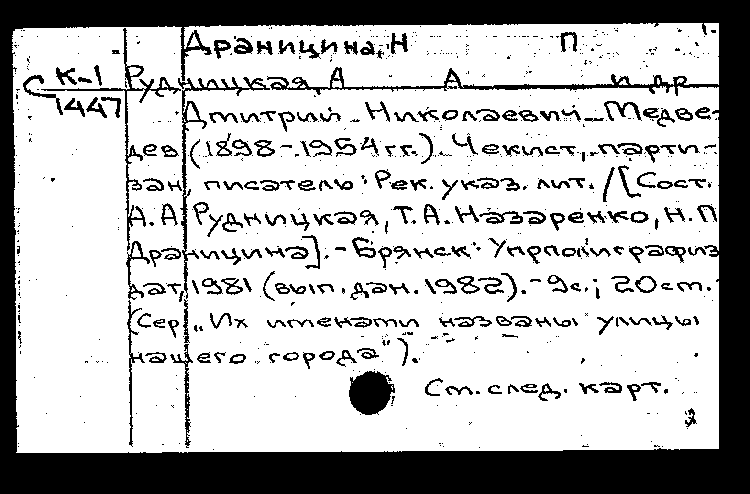 Драницина, Н П
С К-1 Рудницкая, А А и др
1447 Дмитрий Николаевич Медве-
дев (1898-1954 гг.). Чекист, парти-
зан, писатель: Рек. указ. лит. / [Сост.
А. А. Рудницкая, Т. А. Назаренко, Н. П
Драницина]. - Брянск: Упрполиграфиз
дат, 1981 (вып. дан. 1982). - 9с.; 20см. -
(Сер. „Их именами названы улицы
нашего города").
См. след. карт.